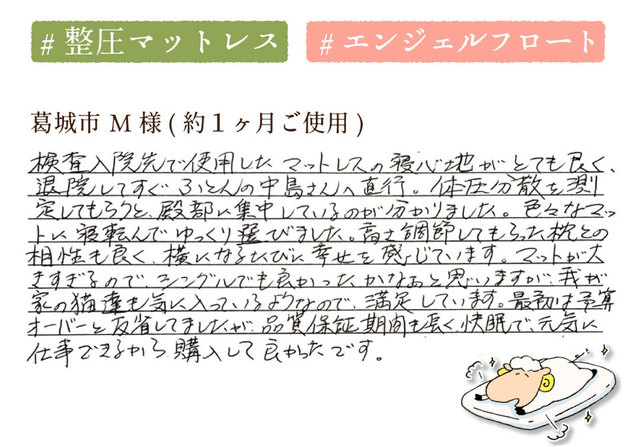 #整圧マットレス #エンジェルフロート
葛城市 M 様 ( 約１ヶ月ご使用 )
検査入院先で使用したマットレスの寝心地がとても良く、
退院してすぐふとんの中島さんへ直行。体圧分散を測
定してもらうと、殿部に集中しているのが分かりました。色々なマッ
トに寝転んでゆっくり選びました。高さ調節してもらった枕との
相性も良く、横になるたびに幸せを感じています。マットが大
きすぎるので、シングルでも良かったかなぁと思いますが、我が
家の猫達も気に入っているようなので、満足しています。最初は予算
オーバーと反省してましたが、品質保証期間も長く、快眠で、元気に
仕事できるから購入して良かったです。